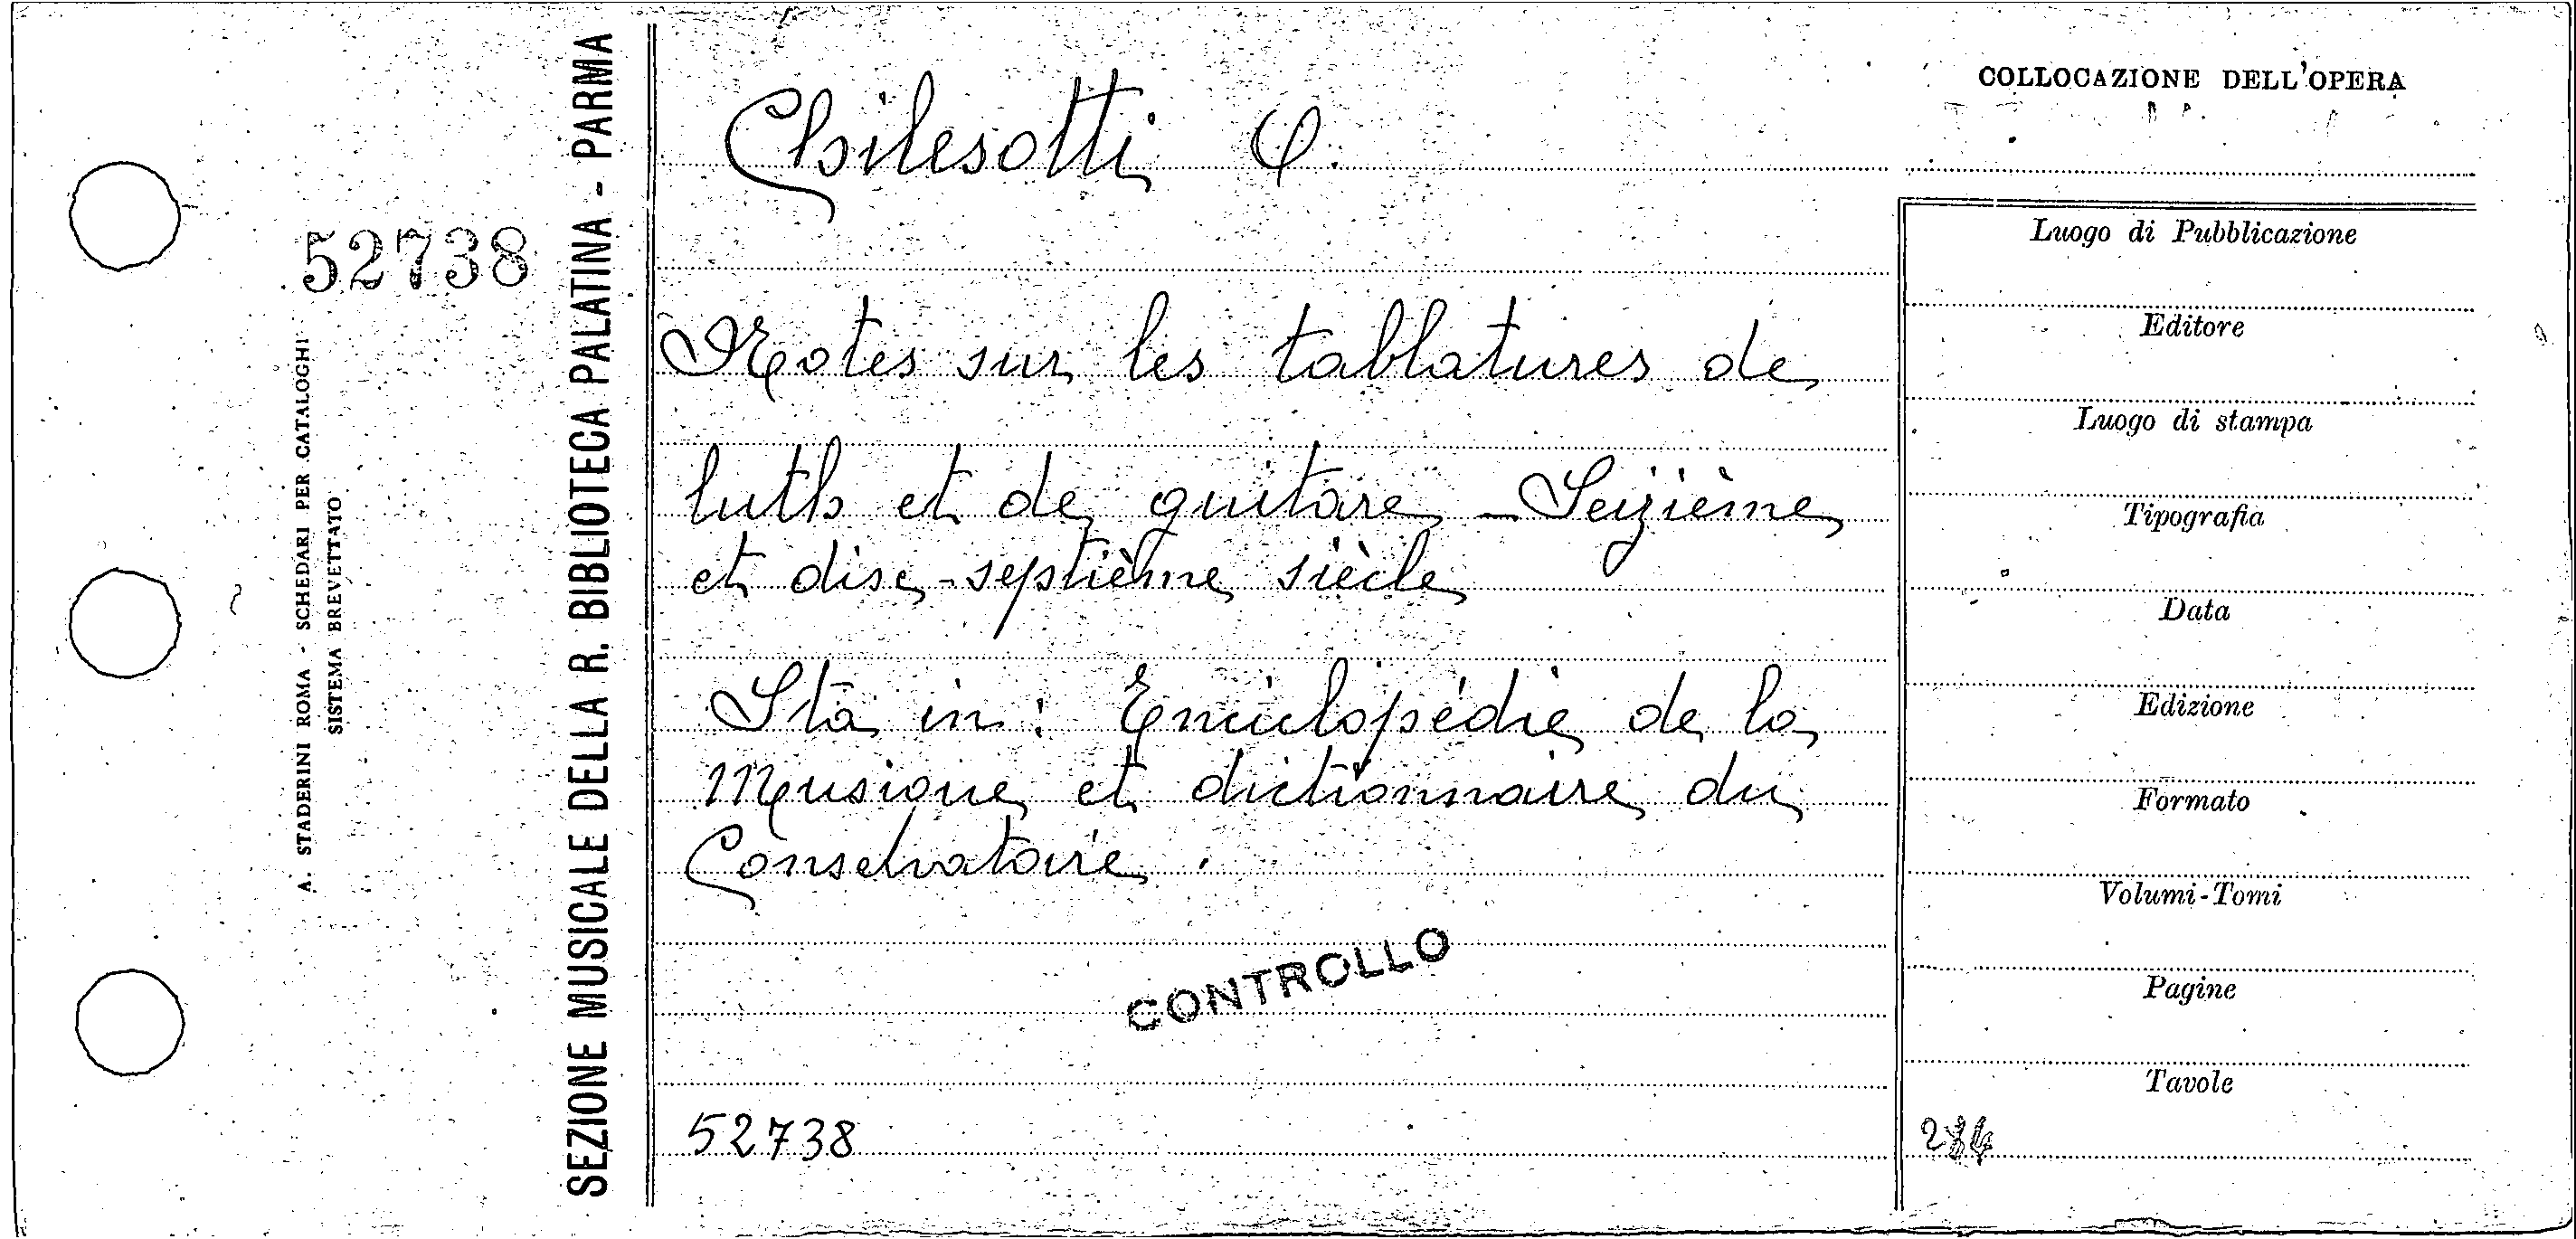 52738
A. STADERINI ROMA - SCHEDARI PER CATALOGHI
SISTEMA BREVETTATO
SEZIONE MUSICALE DELLA R. BIBLIOTECA PALATINA - PARMA
Chilesotti O.
Notes sur les tablatures de
luth et de guitare - Seizième
et dise-septième siècle
Sta in: Enciclopédie de la
Musique et dictionnaire du
Conservatoire.
CONTROLLO
52738
COLLOCAZIONE DELL'OPERA
Luogo di Pubblicazione
Editore
Luogo di stampa
Tipografia
Data
Edizione
Formato
Volumi-Tomi
Pagine
Tavole